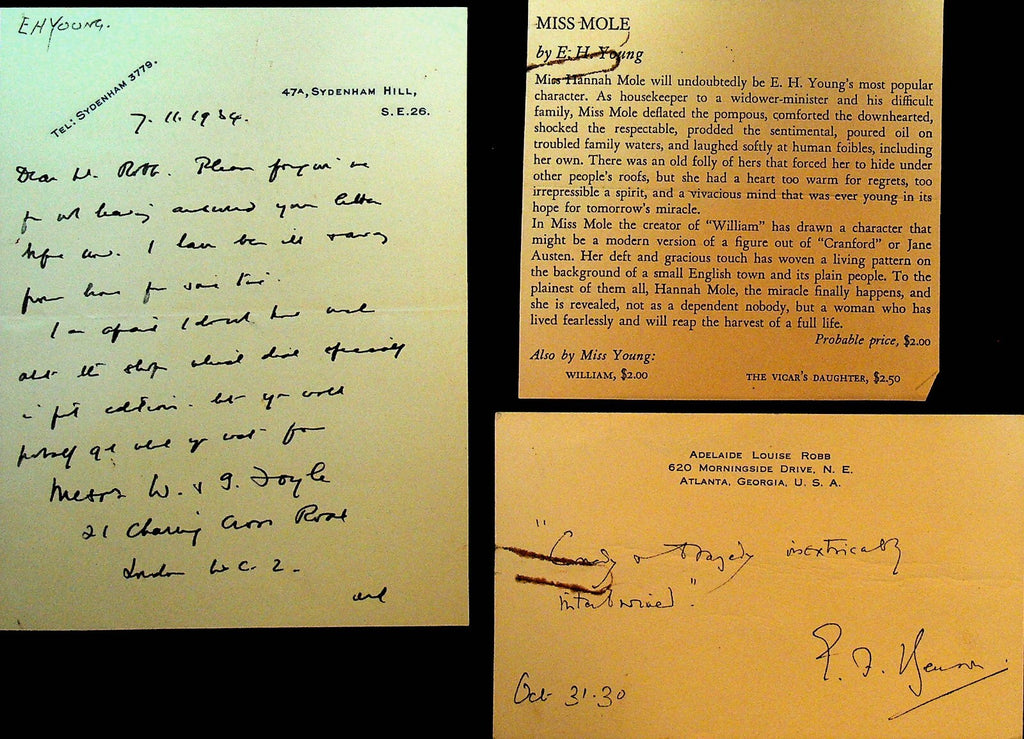 E H YOUNG.
TEL: SYDENHAM 3779.
47A, SYDENHAM HILL,
S.E.26.
7. 11. 1934.
Dear M. Robb. Please forgive me
for not having answered your letter
before now. I have been ill & away
from home for some time.
I am afraid I don't know
about the shops which deal especially
in first editions. but you could
probably get what you want from
Messrs W. & G. Foyle
21 Charing Cross Road
London W.C. 2.
and
MISS MOLE
by E. H. Young
Miss Hannah Mole will undoubtedly be E. H. Young's most popular
character. As housekeeper to a widower-minister and his difficult
family, Miss Mole deflated the pompous, comforted the downhearted,
shocked the respectable, prodded the sentimental, poured oil on
troubled family waters, and laughed softly at human foibles, including
her own. There was an old folly of hers that forced her to hide under
other people's roofs, but she had a heart too warm for regrets, too
irrepressible a spirit, and a vivacious mind that was ever young in its
hope for tomorrow's miracle.
In Miss Mole the creator of "William" has drawn a character that
might be a modern version of a figure out of "Cranford" or Jane
Austen. Her deft and gracious touch has woven a living pattern on
the background of a small English town and its plain people. To the
plainest of them all, Hannah Mole, the miracle finally happens, and
she is revealed, not as a dependent nobody, but a woman who has
lived fearlessly and will reap the harvest of a full life.
Probable price, $2.00
Also by Miss Young:
WILLIAM, $2.00 THE VICAR'S DAUGHTER, $2.50
ADELAIDE LOUISE ROBB
620 MORNINGSIDE DRIVE, N. E.
ATLANTA, GEORGIA, U. S. A.
"Comedy & tragedy inextricably
intertwined."
Oct 31. 30